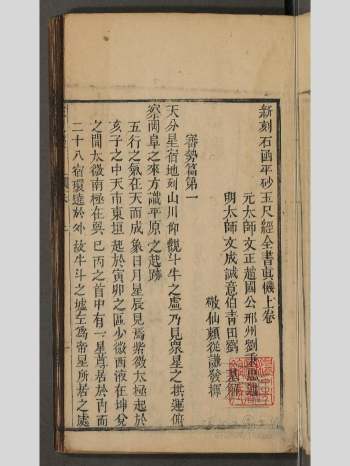 新刻石函平砂玉尺經全書真機上卷
元太師文正趙國公邢州劉秉忠述
明太師文成誠意伯青田劉基解
敬仙賴從謙發揮
審勢篇第一
天分星宿地列山川仰觀斗牛之墟乃見眾星之拱運俯
察岡阜之來方識平原之起跡
五行之氣在天而成象日月星辰見焉紫微太極起於
亥子之中天市東垣起於寅卯之區少微西液在坤兌
之間太微南極在巽巳丙之首中有一星尊居於內而
二十八宿環遶於外故牛斗之墟左為帝星所居之處